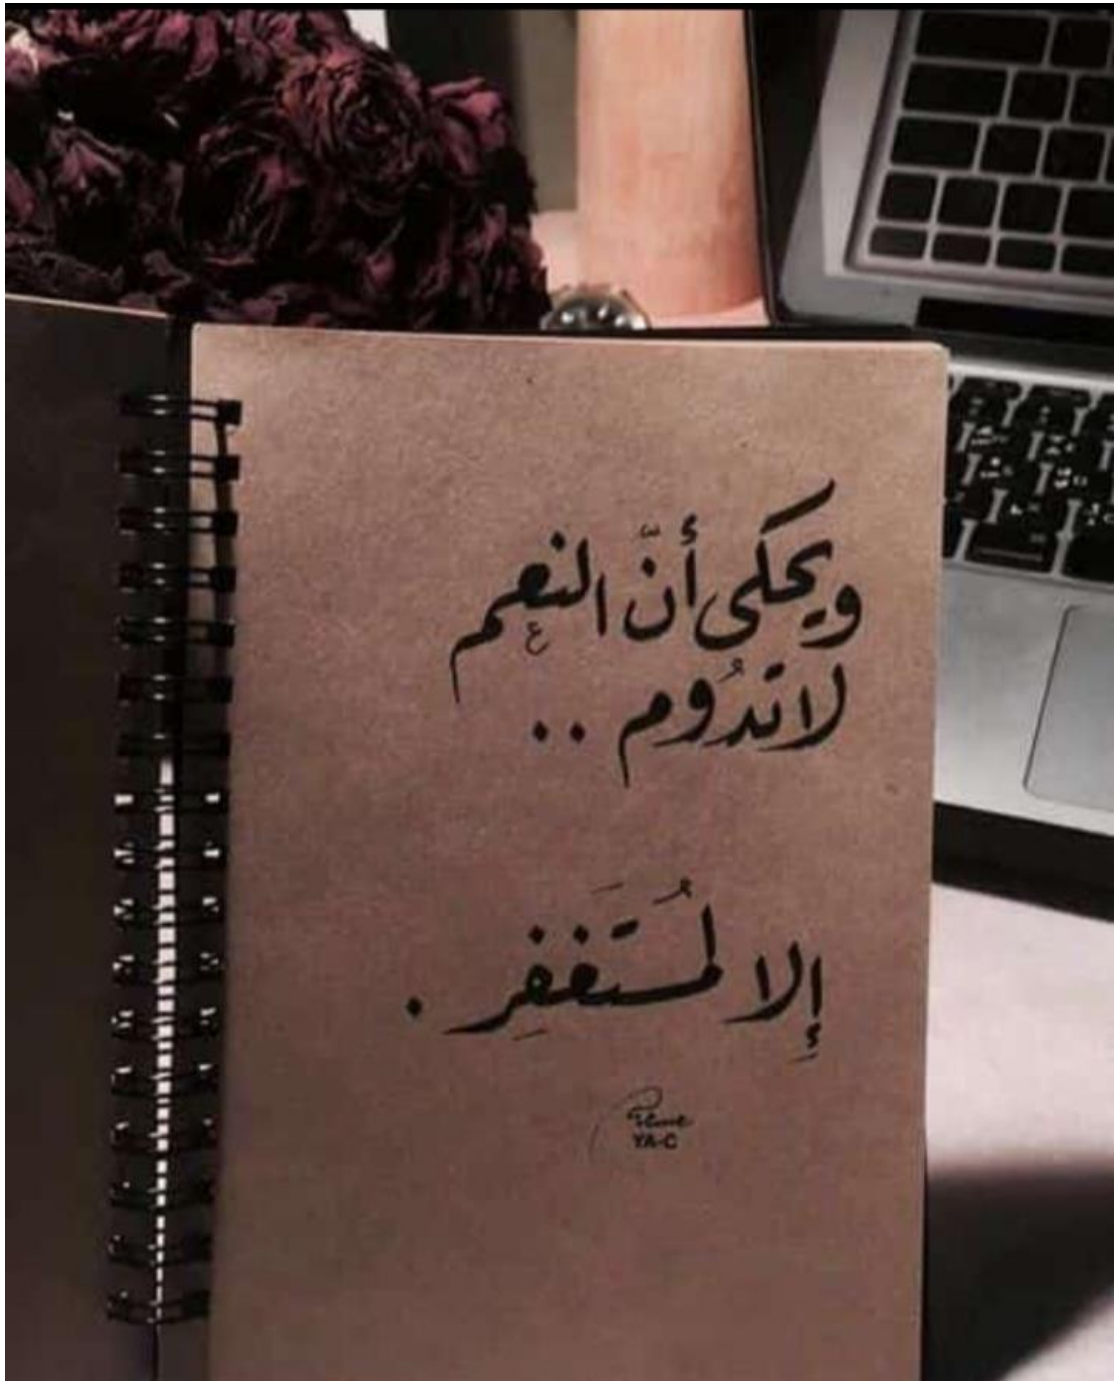 ويحكى أنّ النعم
لا تدُوم ..
إلا لمُستَغفِر .
YA-C